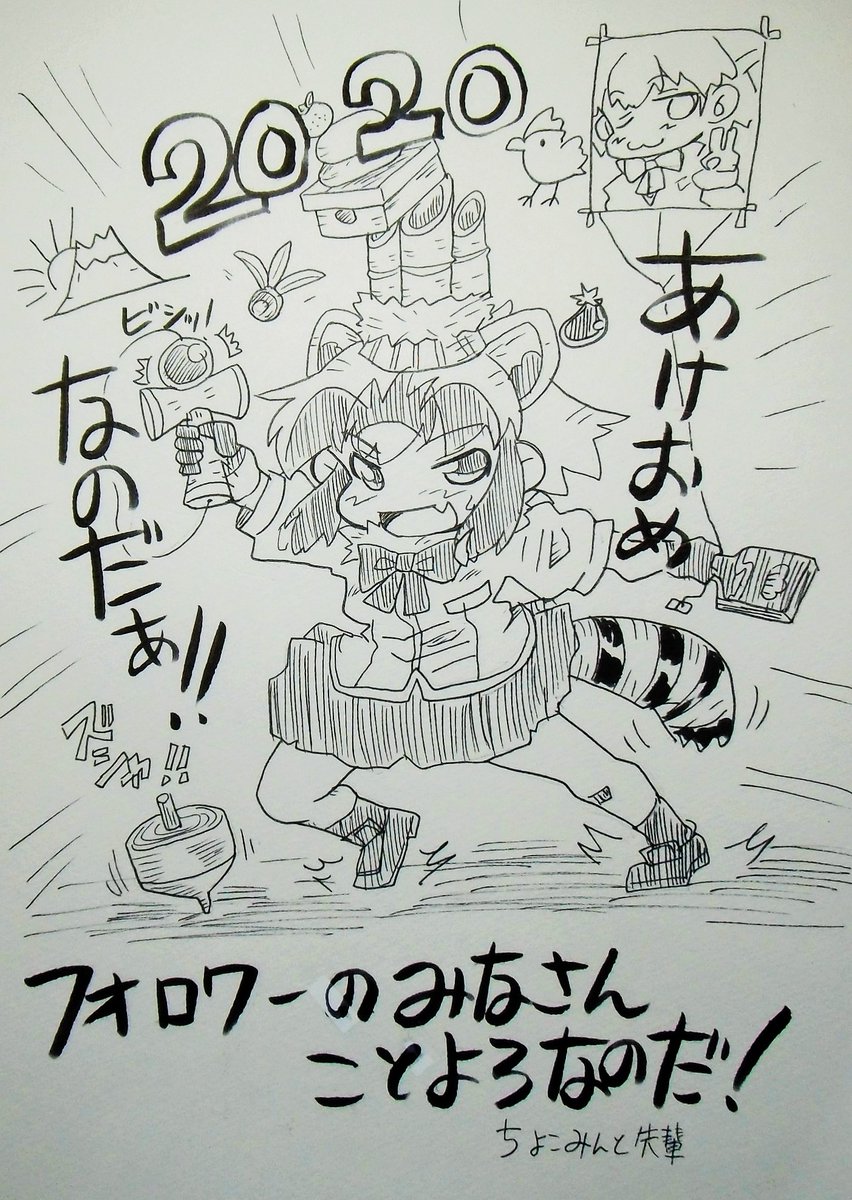 2020
あけおめ
なのだぁ!!
ビシッ!
ズシャ!!
フォロワーのみなさん
ことよろなのだ!
ちょこみんと先輩